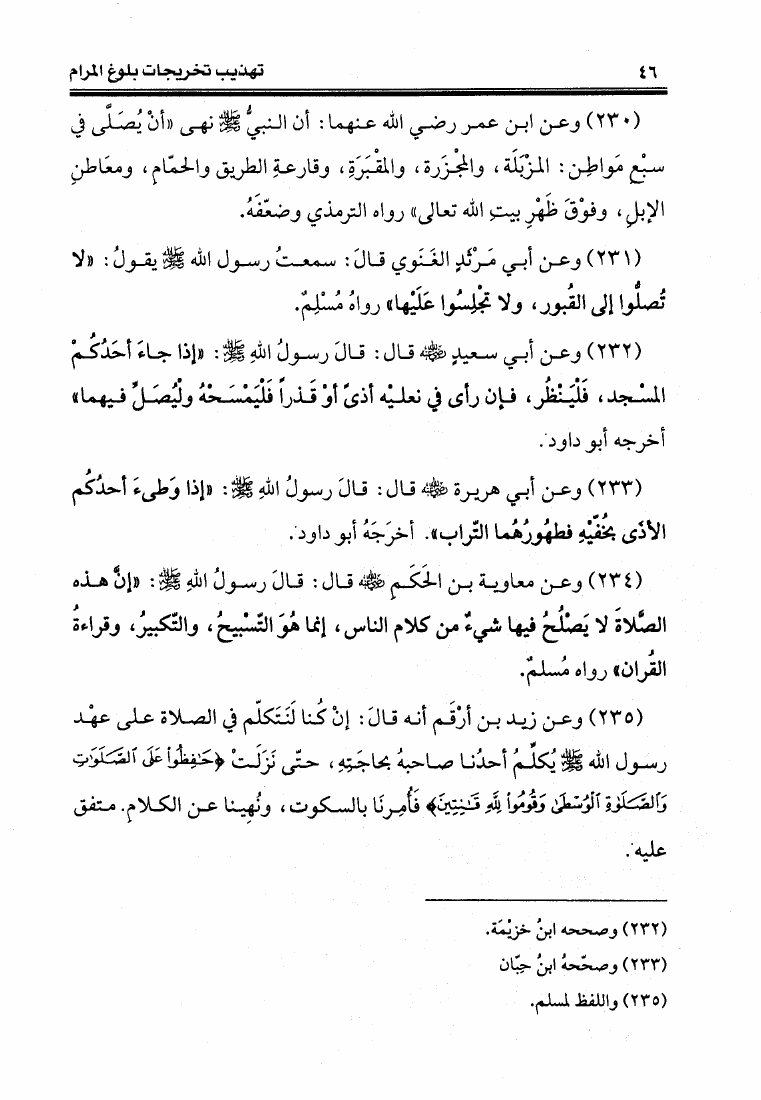 ٤٦ تهذيب تخريجات بلوغ المرام
(٢٣٠) وعن ابن عمر رضي الله عنهما: أن النبيُّ ﷺ نهى «أنْ يُصَلَّى في
سبْعِ مَواطِن: المزْبَلَة، والمجْزرة، والمقْبَرَةِ، وقارعةِ الطريق والحمّام، ومعَاطنِ
الإبلِ، وفوْقَ ظَهْرِ بيتِ الله تعالى» رواه الترمذي وضعّفَهُ.
(٢٣١) وعن أبي مَرْثَدٍ الغَنَوي قالَ: سمعتُ رسول الله ﷺ يقولُ: «لا
تُصلُّوا إلى القُبور، ولا تجْلِسُوا عَلَيْها» رواهُ مُسْلِمٌ.
(٢٣٢) وعن أبي سعيدٍ ﵁ قال: قالَ رسولُ اللهِ ﷺ: «إذا جاءَ أحَدُكُمْ
المسْجد، فَلْيَنْظُر، فإن رأى في نعليْه أذىً أوْ قَذراً فَلْيَمْسَحْهُ وليُصَلِّ فيهما»
أخرجه أبو داود.
(٢٣٣) وعن أبي هريرة ﵁ قال: قالَ رسولُ اللهِ ﷺ: «إذا وَطىءَ أحدُكُم
الأذَى بخُفَّيْهِ فطهُورُهُما التّراب». أخرَجَهُ أبو داود.
(٢٣٤) وعن معاوية بن الحَكَمِ ﵁ قال: قالَ رسولُ اللهِ ﷺ: «إنَّ هذه
الصَّلاةَ لا يَصْلُحُ فيها شيءٌ من كلام الناس، إنما هُوَ التّسْبيحُ، والتّكبيرُ، وقراءةُ
القُران» رواه مُسلمٌ.
(٢٣٥) وعن زيد بن أرْقَم أنه قالَ: إنْ كُنا لَنَتَكلّم في الصلاة على عهْد
رسول الله ﷺ يُكلِّمُ أحدُنا صاحبهُ بحاجَتِهِ، حتّى نَزَلَتْ ﴿حَـٰفِظُواْ عَلَى ٱلصَّلَوَٰتِ
وَٱلصَّلَوٰةِ ٱلْوُسْطَىٰ وَقُومُواْ لِلَّهِ قَـٰنِتِينَ﴾ فَأُمِرنَا بالسكوت، ونُهِينا عن الكلام. متفق
عليه.
(٢٣٢) وصححه ابنُ خزيْمَة.
(٢٣٣) وصحّحهُ ابنُ حِبّان
(٢٣٥) واللفظ لمسلم.